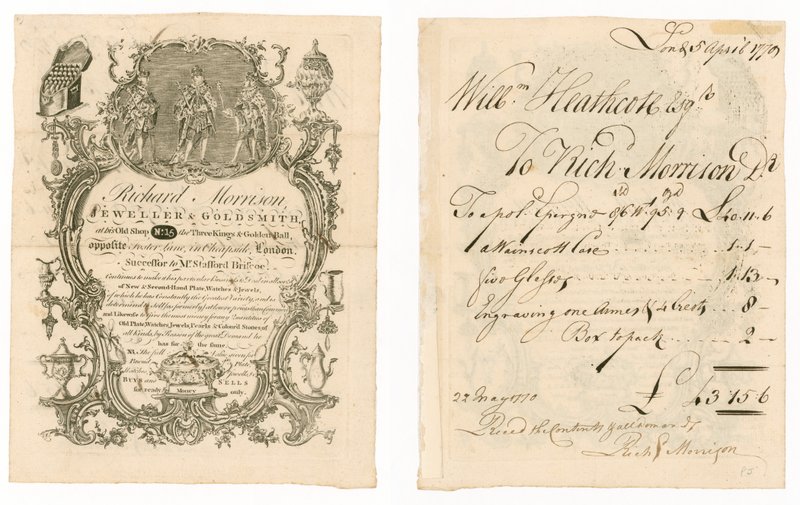 Richard Morrison
JEWELLER & GOLDSMITH,
at his Old Shop No. 15 the Three Kings & Golden Ball,
oppoſite Foster Lane, in Cheapside, London.
Succeſſor to Mr. Stafford Briſcoe:
Continues to make it his particular Buſineſs to Deal in all sorts
of New & Second-Hand Plate, Watches & Jewels,
of which he has Constantly the Greatest Variety, and is
determined to Sell
and Likewiſe to give the most money for any Quantities of
Old Plate, Watches, Jewels, Pearls & Colour'd Stones of
all Kinds, by Reaſon of the great Demand he
has for the ſame.
Plate,
Watches Jewells, &c.
BUYS and SELLS
for ready Money only.
Lond. 5 April 1770
Will.m Heathcote Esqr.
To Rich.d Morrison Dr.
To a pol. Epergne 86 Wt. 95.. 9 £40.. 11.. 6
a Wainscott Case 1.. 1..
five Glasses 1.. 13..
Engraving one Armes & 4 Crests 8..
Box to pack 2..
£ 43.. 15.. 6
22 May 1770
Reced the Contents & all demands
Rich.d Morrison